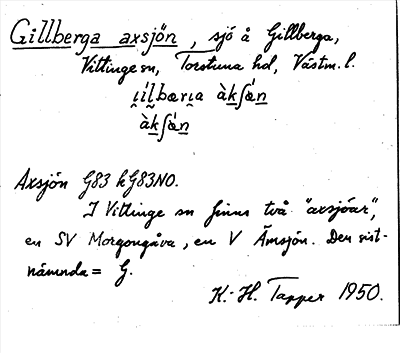 Gillberga axsjön, sjö å Gillberga,
Vittinge sn, Torstuna hd, Västm. l.
i̯ílbœri̯a àkʃœ́n
àkʃœ́n
Axsjön G83 k G83NO.
I Vittinge sn finns två "axsjöar",
en SV Morgongåva, en V Ämsjön. Den sist-
nämnda = G.
K.-H. Tapper 1950.